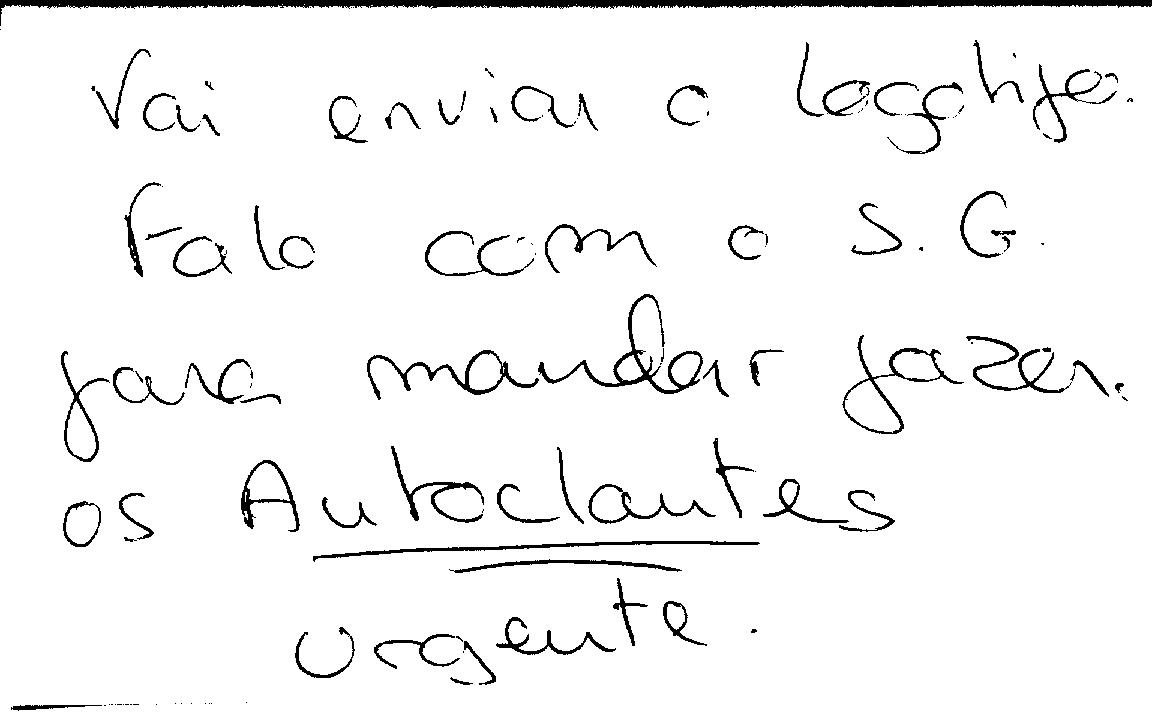 Vai enviar o logotipo.
Falo com o S. G.
para mandar fazer.
os Autoclantes
urgente.